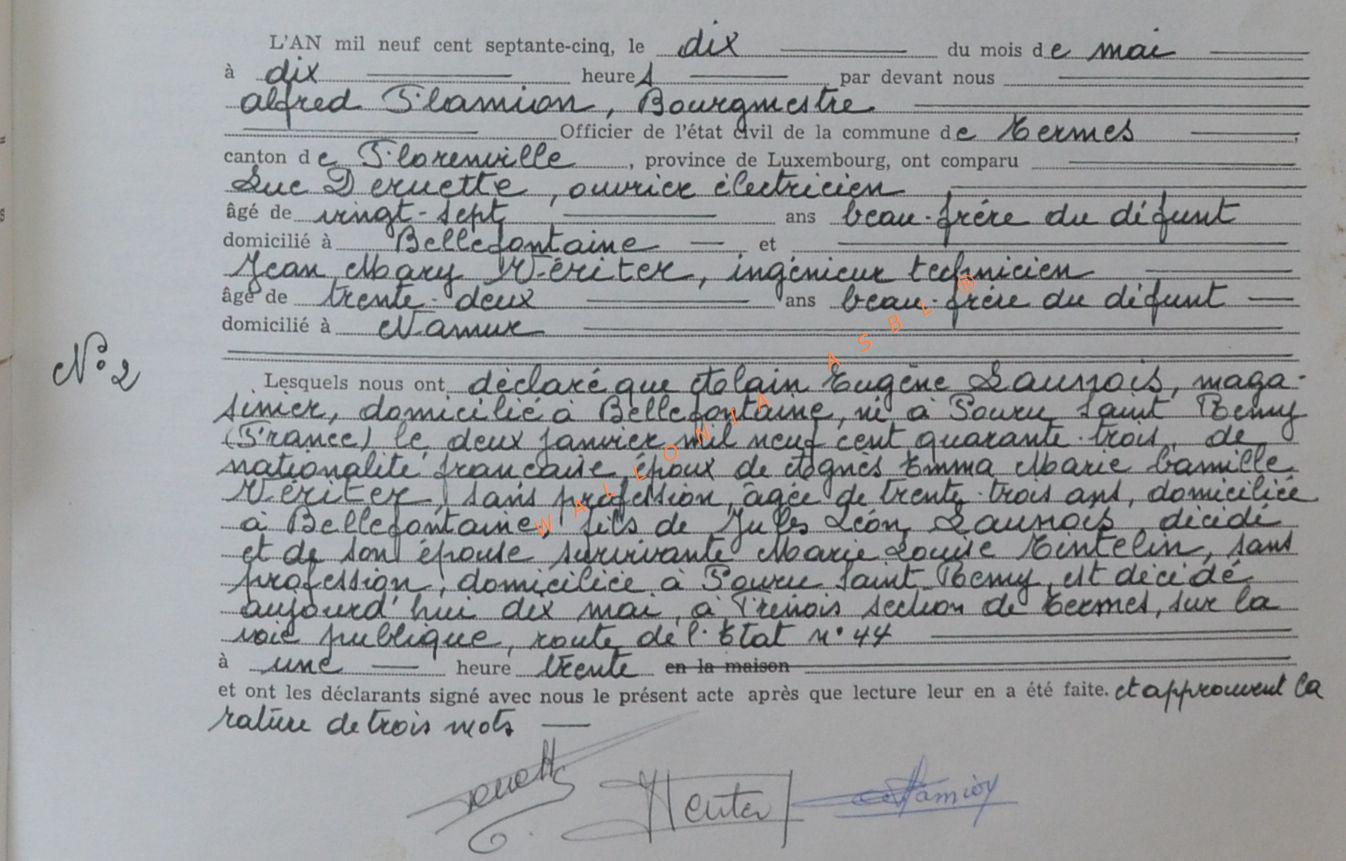 L'AN mil neuf cent septante-cinq, le dix du mois de mai
à dix heures par devant nous
Alfred Flamion, Bourgmestre
Officier de l'état civil de la commune de Termes,
canton de Florenville, province de Luxembourg, ont comparu
Luc Deruette, ouvrier électricien
âgé de vingt-sept ans beau-frère du défunt
domicilié à Bellefontaine et
Jean Mary Wériter, ingénieur technicien
âgé de trente-deux ans beau-frère du défunt
domicilié à Namur
N° 2
Lesquels nous ont déclaré que Alain Eugène Launois, maga-
sinier, domicilié à Bellefontaine, né à Pouru Saint Remy
(France) le deux janvier mil neuf cent quarante-trois, de
nationalité française, époux de Agnès Emma Marie Camille
Wériter, sans profession, âgée de trente-trois ans, domiciliée
à Bellefontaine, fils de Jules Léon Launois, décédé
et de son épouse survivante Marie Louise Tintelin, sans
profession, domiciliée à Pouru Saint Remy, est décédé
aujourd'hui dix mai, à Frenois section de Termes, sur la
voie publique, route de l'Etat n° 44
à une heure trente en la maison
et ont les déclarants signé avec nous le présent acte après que lecture leur en a été faite. et approuvent la
rature de trois mots
WALLONIA ASBL ®